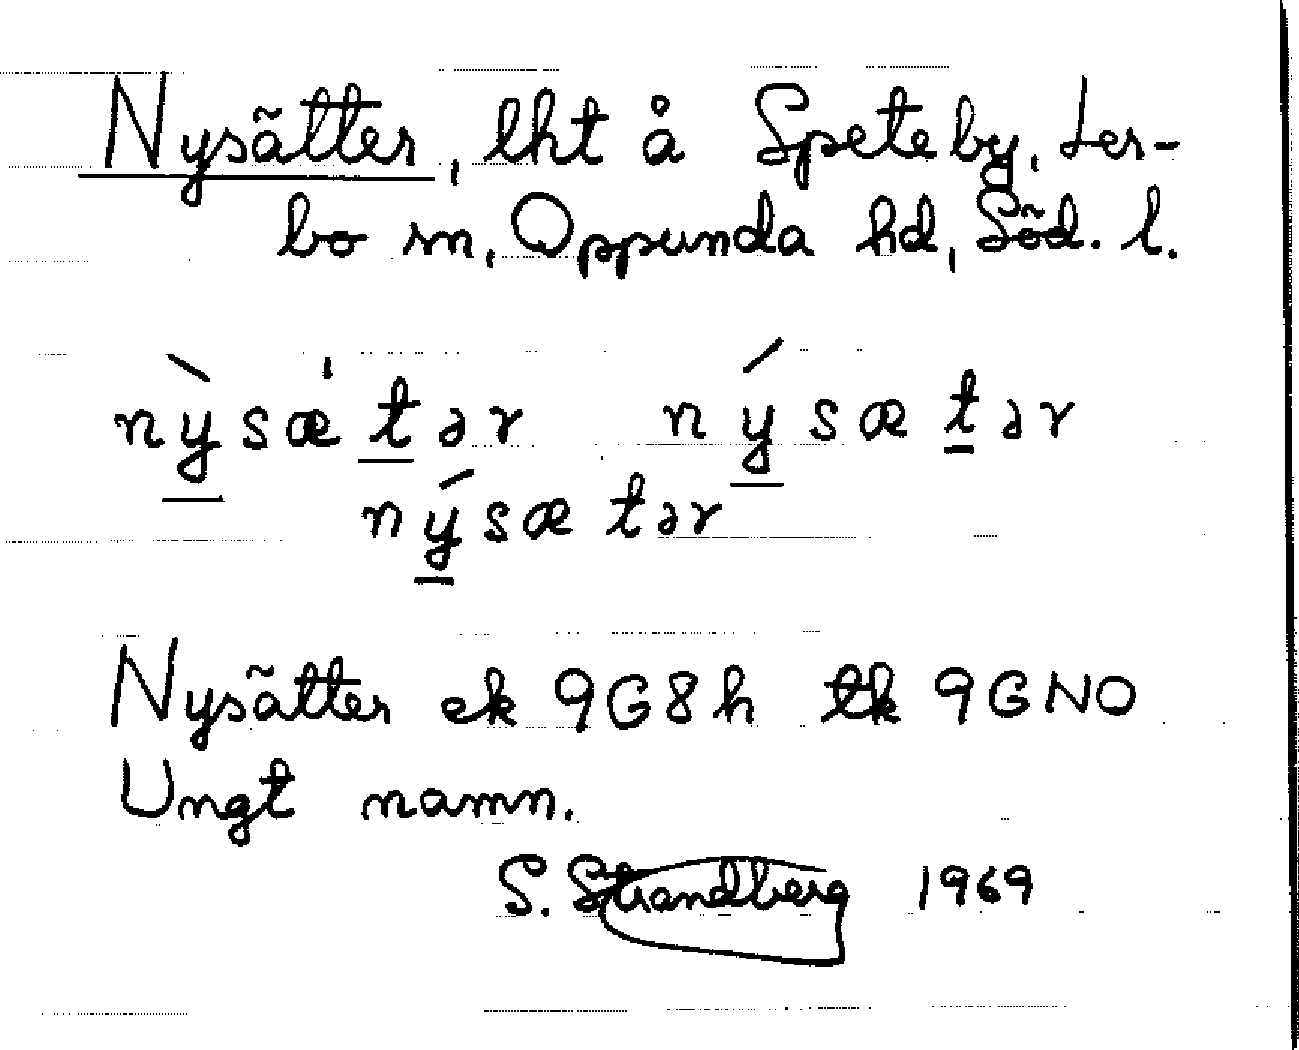 Nysätter, lht å Speteby, Ler-
bo sn, Oppunda hd, Söd. l.
nỳsæ̍tər nýsætər
nýsætər
Nysätter ek 9G8h tk 9GNO
Ungt namn.
S. Strandberg 1969